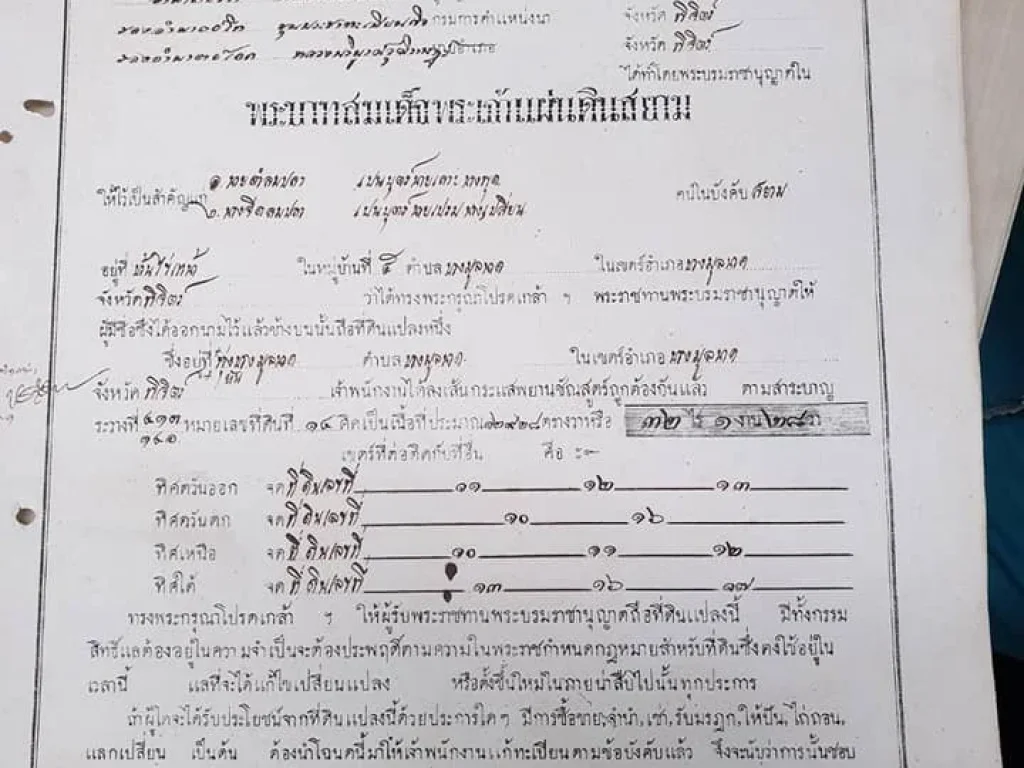 กรมการตำแหน่งนา จังหวัด พิจิตร์
อำเภอ จังหวัด พิจิตร์
ได้ทำโดยพระบรมราชานุญาตใน
พระบาทสมเด็จพระเจ้าแผ่นดินสยาม
๑. นาย เปนบุตร์นาย
ให้ไว้เป็นสำคัญแก่ คนในบังคับ สยาม
๒. นาง เปนบุตร์นาย
อยู่ที่ ในหมู่บ้านที่ ๕ ตำบล บางมูลนาค ในเขตร์อำเภอ บางมูลนาค
จังหวัด พิจิตร์ ว่าได้ทรงพระกรุณาโปรดเกล้า ฯ พระราชทานพระบรมราชานุญาตให้
ผู้มีชื่อซึ่งได้ออกนามไว้แล้วข้างบนนั้นถือที่ดินแปลงหนึ่ง
ซึ่งอยู่ที่ ทุ่งบางมูลนาค ตำบล บางมูลนาค ในเขตร์อำเภอ บางมูลนาค
จังหวัด พิจิตร์ เจ้าพนักงานได้ลงเส้นกระแสพยานชัณสูตร์ถูกต้องกันแล้ว ตามสำระบาญ
ระวางที่ หมายเลขที่ดินที่ ๑๔ คิดเป็นเนื้อที่ประมาณ ๑๒๙๒๘ ตรางวาหรือ ๓๒ ไร่ ๑ งาน ๒๘ วา
เขตร์ที่ต่อติดกับที่อื่น คือ ะ~
ทิศตวันออก จด ที่ดินเลขที่ ๑๑ ๑๒ ๑๓
ทิศตวันตก จด ที่ดินเลขที่ ๑๐ ๑๖
ทิศเหนือ จด ที่ดินเลขที่ ๑๐ ๑๑ ๑๒
ทิศใต้ จด ที่ดินเลขที่ ๑๓ ๑๖ ๑๗
ทรงพระกรุณาโปรดเกล้า ฯ ให้ผู้รับพระราชทานพระบรมราชานุญาตถือที่ดินแปลงนี้ มีทั้งกรรม
สิทธิ์แลต้องอยู่ในความจำเป็นจะต้องประพฤติ์ตามความในพระราชกำหนดกฎหมายสำหรับที่ดินซึ่งคงใช้อยู่ใน
เวลานี้ แลที่จะได้แก้ไขเปลี่ยนแปลง หรือตั้งขึ้นใหม่ในภายน่าสืบไปนั้นทุกประการ
ถ้าผู้ใดจะได้รับประโยชน์จากที่ดินแปลงนี้ด้วยประการใด ๆ มีการซื้อขาย, จำนำ, เช่า, รับมรฎก, ให้ปัน, ไถ่ถอน,
แลกเปลี่ยน เป็นต้น ต้องนำโฉนดนี้มาให้เจ้าพนักงานแก้ทะเบียนตามข้อบังคับแล้ว จึงจะนับว่าการนั้นชอบ